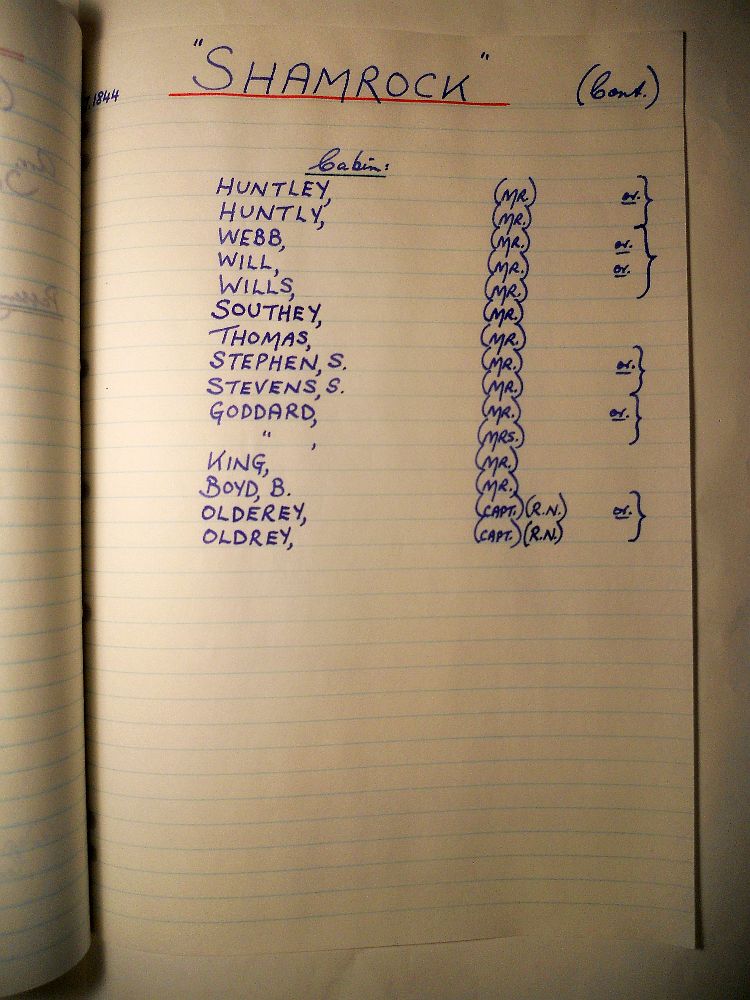 "SHAMROCK" (Cont.)
1844
Cabin:
HUNTLEY, (MR.) or.
HUNTLY, (MR.)
WEBB, (MR.) or.
WILL, (MR.) or.
WILLS, (MR.)
SOUTHEY, (MR.)
THOMAS, (MR.)
STEPHEN, S. (MR.) or.
STEVENS, S. (MR.)
GODDARD, (MR.) or.
" , (MRS.)
KING, (MR.)
BOYD, B. (MR.)
OLDEREY, (CAPT.) (R.N.) or.
OLDREY, (CAPT.) (R.N.)